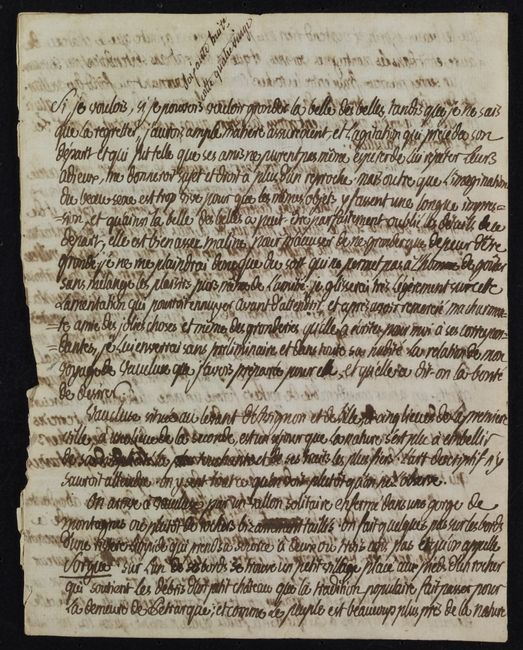 Si je voulois, si je pouvois vouloir gronder la belle des belles, tandis que je ne sais
que la regretter, j'aurois ample matiere assurement et l'agitation qui précéda son
départ et qui fut telle que ses amis ne purent pas même esperer de lui rejeter leurs
adieux, me donneroit sujet et droit à plus d'un reproche mais outre que l'imagination
du beau sexe est trop vive pour que les mêmes objets y fassent une longue impres-
sion, et qu'ainsi la belle des belles a peut être parfaitement oublié les détails de ce
départ, elle est bien assez maline pour m'accuser de ne gronder que de peur d'être
grondé, je ne me plaindrai donc que du sort qui ne permet pas à l'homme de goûter
sans mélange les plaisirs purs même de l'amitié je glisserai très légèrement sur cette
lamentation qui pourroit ennuyer avant d'attendrir et après avoir remercié ma charman-
te amie des jolies choses et même des gronderies qu'elle a écrites pour moi à ses correspon-
dantes, je lui enverrai sans préliminaire et dans toute sa nudité la relation de mon
voyage de vaucluse que j'avois préparée pour elle, et qu'elle a dit on la bonté
de desirer.
Vaucluse située au levant d'Avignon et de l'Ille à cinq lieues de la premiere
ville, à une lieue de la seconde, est un séjour que la nature s'est plu à embellir
de et de ses traits les plus fiers. l'art descriptif n'y
sauroit atteindre on y sent tout ce qu'on voit plutôt qu'on n'y observe.
On arrive à vaucluse par un vallon solitaire enfermé dans une gorge de
montagnes ou plutôt de rochers taillés on fait quelques pas sur les bords
d'une riviere limpide qui prend sa source à deux ou trois cens pas et qu'on appelle
Sorgue sur l'un de ses bords se trouve un petit village placé aux pieds d'un rocher
qui soutient les débris d'un petit château que la tradition populaire fait passer pour
la demeure de Petrarque; et comme le peuple est beaucoup plus près de la nature